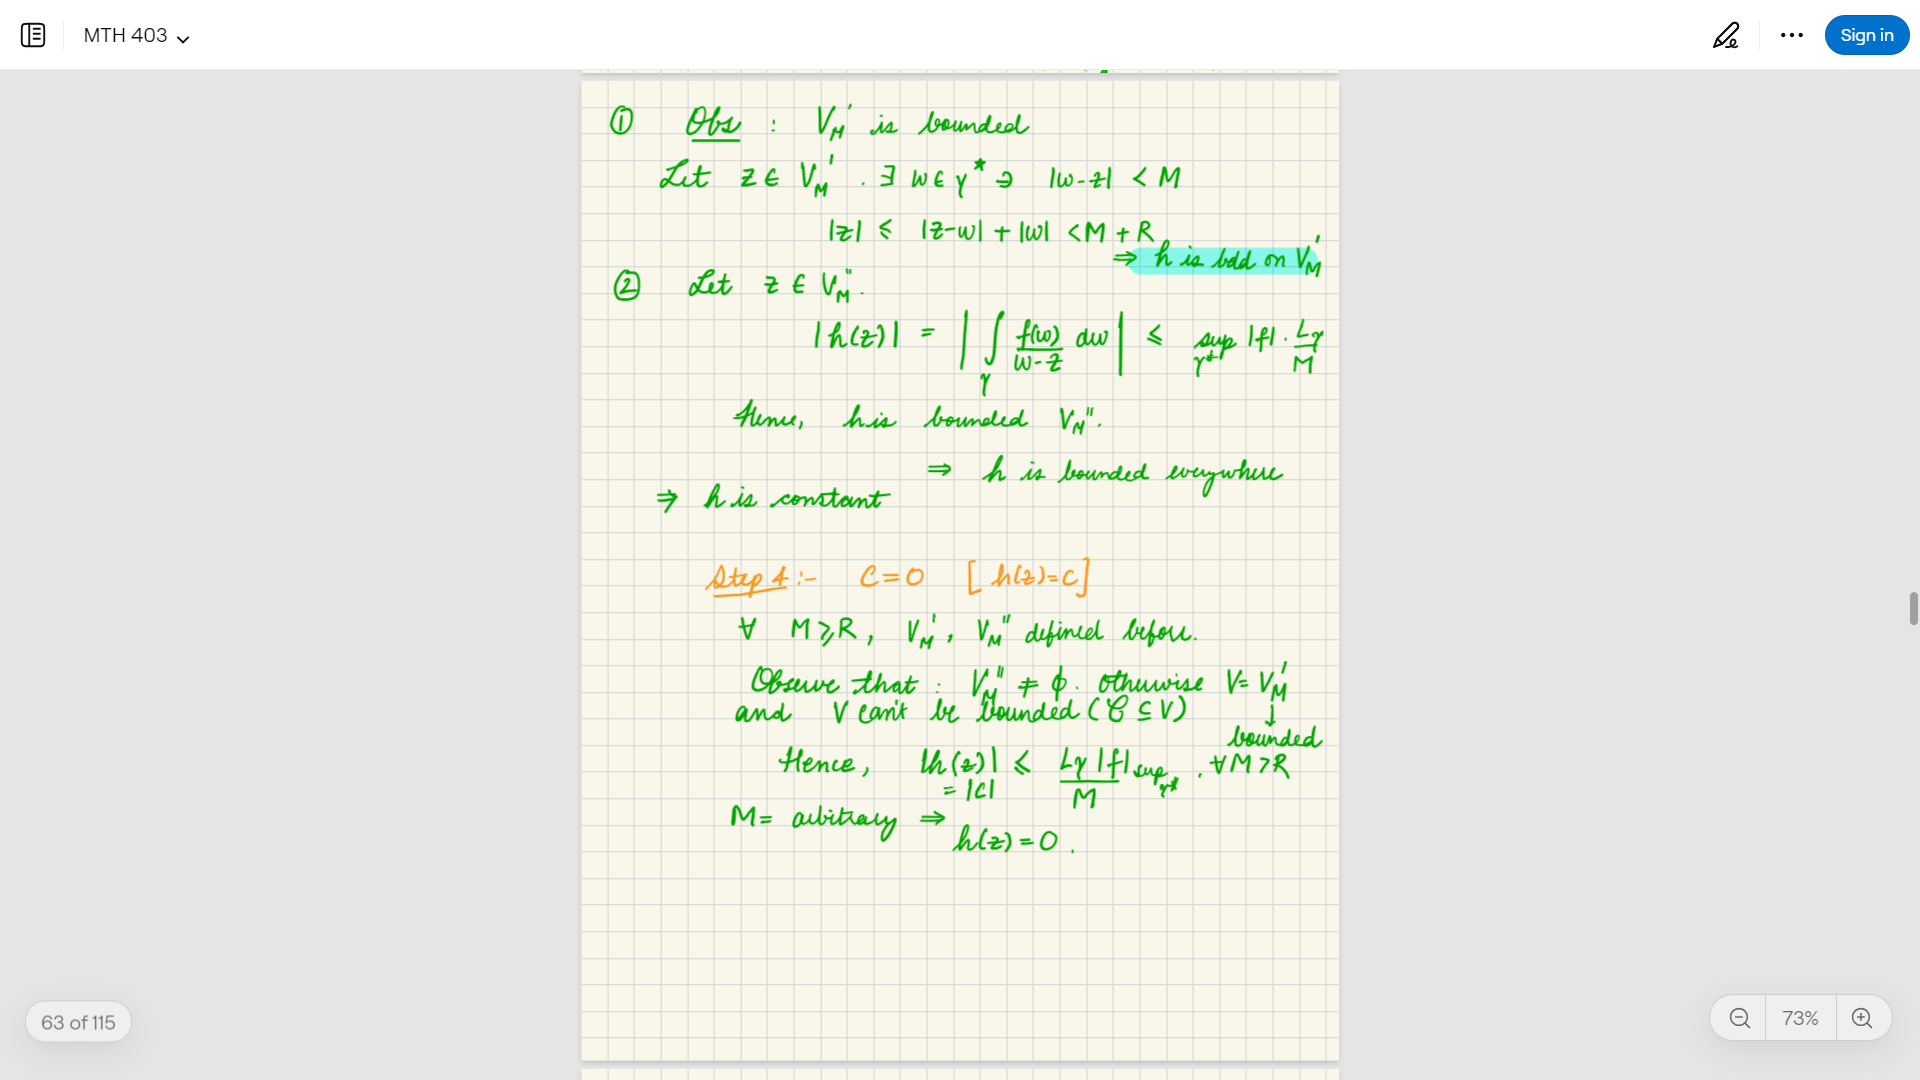 MTH 403
Sign in
① Obs : V_M' is bounded
Let z ∈ V_M' . ∃ w ∈ γ* ∋ |w-z| < M
|z| ≤ |z-w| + |w| < M + R
⇒ h is bdd on V_M'
② Let z ∈ V_M''.
|h(z)| = | ∫_γ f(w)/(w-z) dw | ≤ sup_γ* |f| . L_γ/M
Hence, h is bounded V_M''.
⇒ h is bounded everywhere
⇒ h is constant
Step 4 :- C = 0 [ h(z) = C ]
∀ M ≥ R, V_M', V_M'' defined before.
Observe that : V_M'' ≠ ϕ. otherwise V = V_M'
and V can't be bounded ( C ⊆ V) ↓
bounded
Hence, |h(z)| ≤ L_γ |f|_sup_γ* / M . ∀ M > R
= |C|
M = arbitrary ⇒
h(z) = 0 .
63 of 115
73%